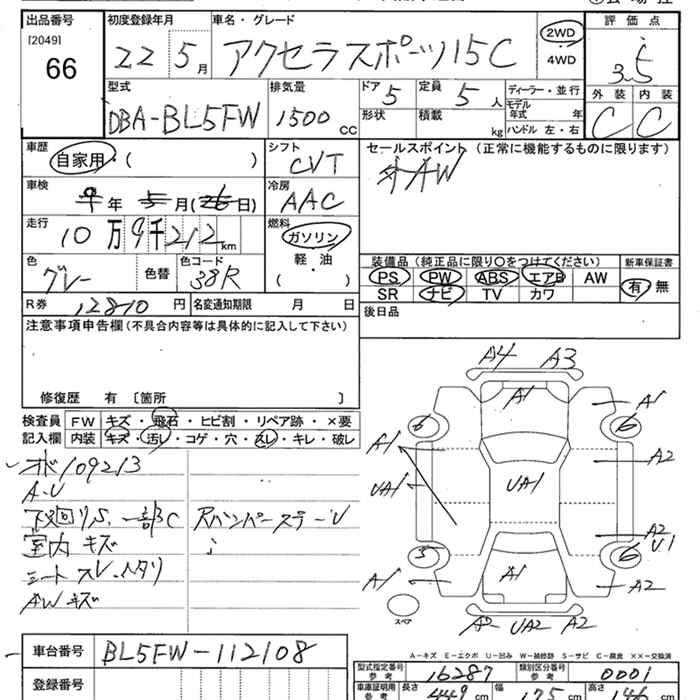 出品番号 初度登録年月 車名・グレード 評価点
[2049]
66 22 5月 アクセラスポーツ15C 2WD 4WD 3.5
型式 排気量 ドア 5 定員 5人 ディーラー・並行 外装 内装
DBA-BL5FW 1500cc 形状 積載 kg モデル年式 年 C C
ハンドル 左・右
車歴 シフト セールスポイント (正常に機能するものに限ります)
自家用・( ) CVT AW
車検 冷房
年 5月(26日) AAC
走行 燃料
10万9千212km ガソリン
軽・油
( )
装備品(純正品に限り○をつけてください) 新車保証書
色 色替 色コード PS PW ABS エアB AW 有・無
グレー 38R SR ナビ TV カワ
R券 12810円 名変通知期限 月 日 後日品
注意事項申告欄(不具合内容等は具体的に記入して下さい)
修復歴 有〔箇所 〕
検査員 FW キズ・飛石・ヒビ割・リペア跡・×要
記入欄 内装 キズ・汚レ・コゲ・穴・スレ・キレ・破レ
109213
A-U
下廻りS. 一部C RバンパーステーU
室内 キズ
シート スレ.ヘタリ
AW キズ
A4 A3
A1 A1
6 6
A1 A2
UA1 UA1
A2
U1
6
A1 A1 A2
A2 UA2 A2
スペア
A-キズ E-エクボ U-凹み W-補修跡 S-サビ C-腐食 ××-交換済
車台番号 BL5FW-112108
登録番号
型式指定番号 参考 16287 類別区分番号 参考 0001
車庫証明用 参考 長さ 449cm 幅 175cm 高さ 146cm